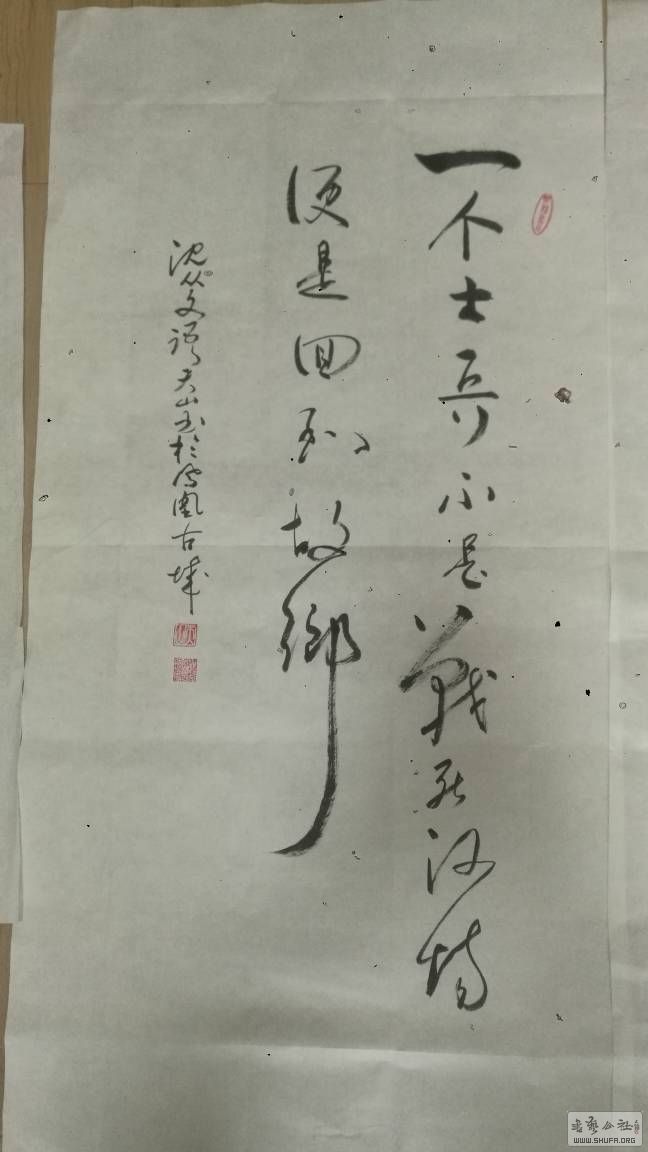 一个士兵不是戰死沙场
便是回到故鄉
沈从文语天山书於凤凰古城
书艺公社
WWW.SHUFA.ORG